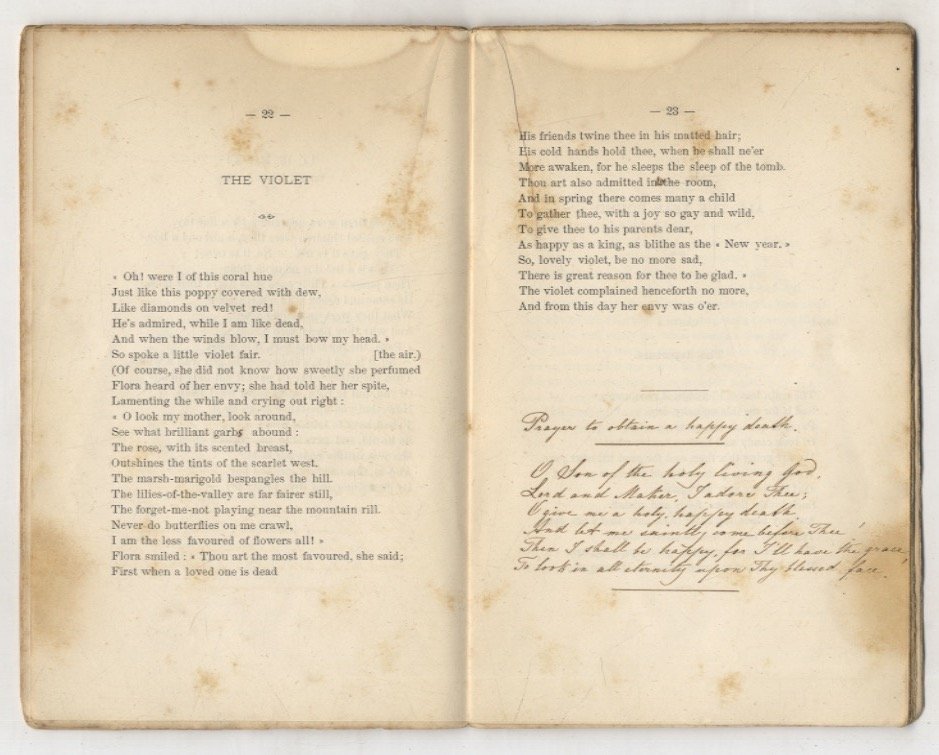 — 22 —
THE VIOLET
« Oh! were I of this coral hue
Just like this poppy covered with dew,
Like diamonds on velvet red!
He's admired, while I am like dead,
And when the winds blow, I must bow my head. »
So spoke a little violet fair. [the air.)
(Of course, she did not know how sweetly she perfumed
Flora heard of her envy; she had told her her spite,
Lamenting the while and crying out right :
« O look my mother, look around,
See what brilliant garbs abound :
The rose, with its scented breast,
Outshines the tints of the scarlet west.
The marsh-marigold bespangles the hill.
The lilies-of-the-valley are far fairer still,
The forget-me-not playing near the mountain rill.
Never do butterflies on me crawl,
I am the less favoured of flowers all! »
Flora smiled : « Thou art the most favoured, she said;
First when a loved one is dead
— 23 —
His friends twine thee in his matted hair;
His cold hands hold thee, when he shall ne'er
More awaken, for he sleeps the sleep of the tomb.
Thou art also admitted in the room,
And in spring there comes many a child
To gather thee, with a joy so gay and wild,
To give thee to his parents dear,
As happy as a king, as blithe as the « New year. »
So, lovely violet, be no more sad,
There is great reason for thee to be glad. »
The violet complained henceforth no more,
And from this day her envy was o'er.
Prayer to obtain a happy death.
O Son of the holy living God,
Lord and Maker, I adore Thee;
O give me a holy, happy death
And let me saintly come before Thee!
Then I shall be happy, for I'll have the grace
To look in all eternity upon Thy blessed face!